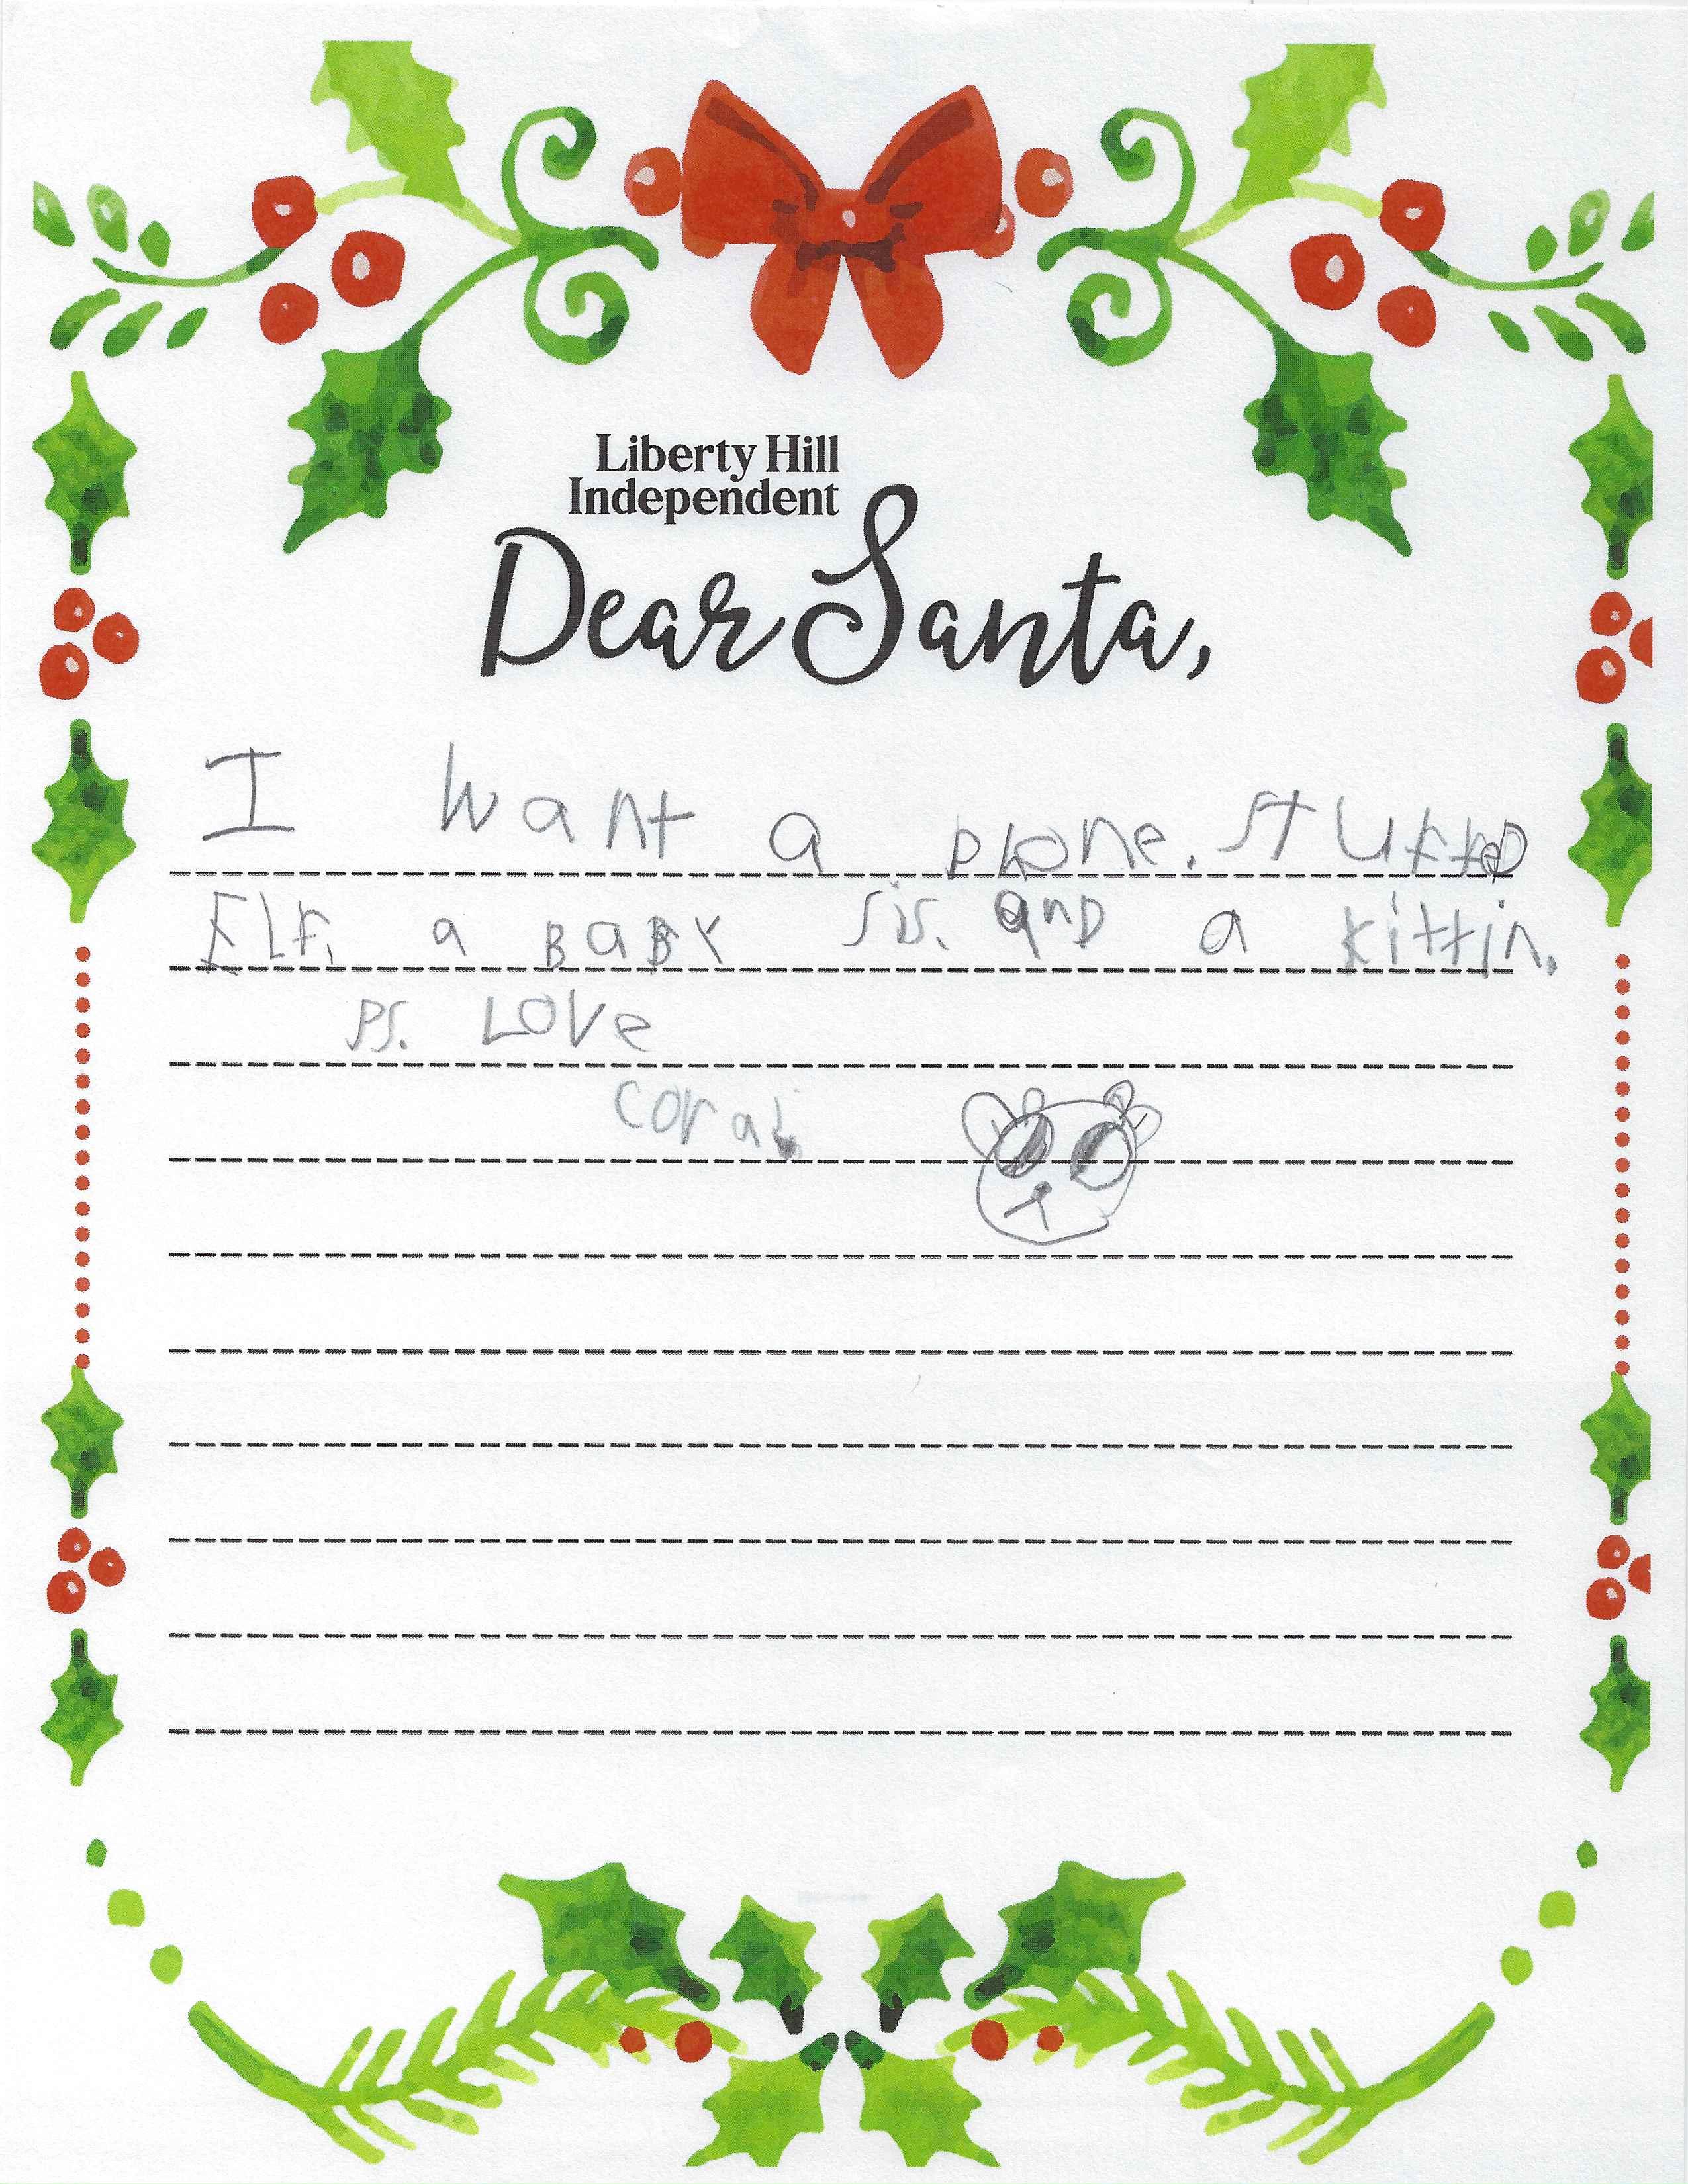 Liberty Hill
Independent
Dear Santa,
I want a phone. stuffed
Elf, a BaBy sis. anD a kittin.
Ps. Love
coral